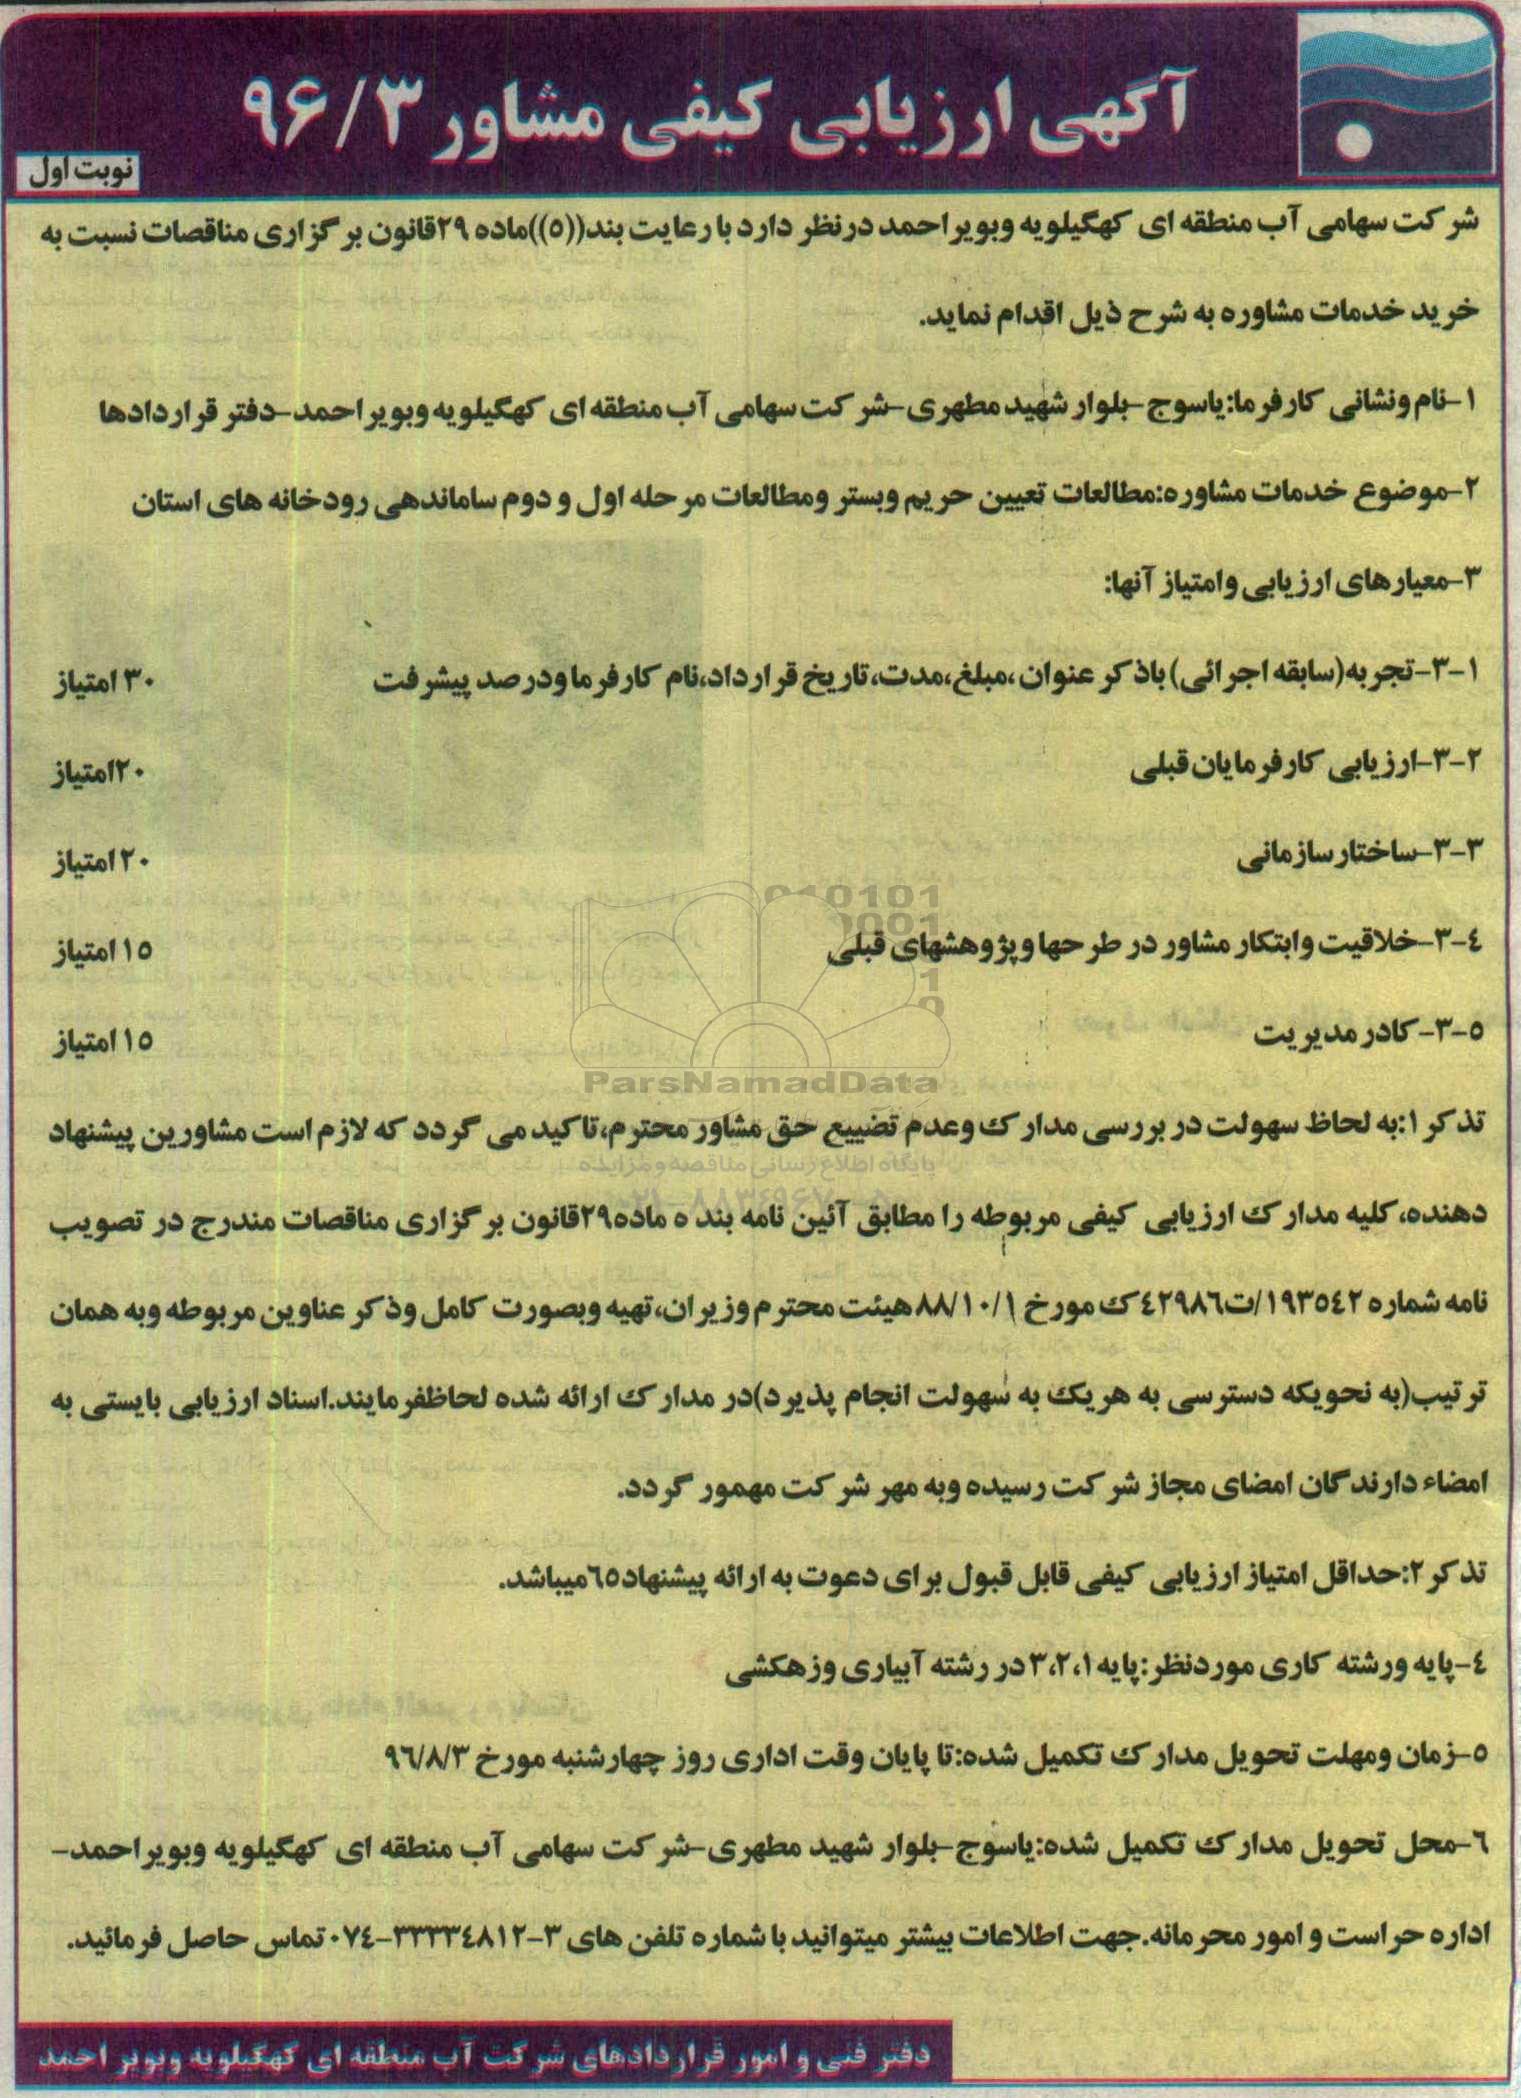 آگهی ارزیابی کیفی مشاور ۹۶/۳
نوبت اول
شرکت سهامی آب منطقه ای کهگیلویه وبویراحمد درنظر دارد با رعایت بند((۵))ماده ۲۹قانون برگزاری مناقصات نسبت به
خرید خدمات مشاوره به شرح ذیل اقدام نماید.
۱-نام ونشانی کارفرما:یاسوج-بلوار شهید مطهری-شرکت سهامی آب منطقه ای کهگیلویه وبویراحمد-دفتر قراردادها
۲-موضوع خدمات مشاوره:مطالعات تعیین حریم وبستر ومطالعات مرحله اول و دوم ساماندهی رودخانه های استان
۳-معیارهای ارزیابی وامتیاز آنها:
۳-۱-تجربه(سابقه اجرائی) باذکر عنوان،مبلغ،مدت،تاریخ قرارداد،نام کارفرما ودرصد پیشرفت ۳۰ امتیاز
۳-۲-ارزیابی کارفرمایان قبلی ۲۰امتیاز
۳-۳-ساختارسازمانی ۲۰ امتیاز
۳-۴-خلاقیت وابتکار مشاور در طرحها وپژوهشهای قبلی ۱۵ امتیاز
۳-۵-کادر مدیریت ۱۵ امتیاز
تذکر۱:به لحاظ سهولت در بررسی مدارک وعدم تضییع حق مشاور محترم،تاکید می گردد که لازم است مشاورین پیشنهاد
دهنده،کلیه مدارک ارزیابی کیفی مربوطه را مطابق آئین نامه بند ه ماده۲۹قانون برگزاری مناقصات مندرج در تصویب
نامه شماره ۱۹۳۵۴۲/ت۴۲۹۸۶ک مورخ ۸۸/۱۰/۱هیئت محترم وزیران،تهیه وبصورت کامل وذکر عناوین مربوطه وبه همان
ترتیب(به نحویکه دسترسی به هریک به سهولت انجام پذیرد)در مدارک ارائه شده لحاظفرمایند.اسناد ارزیابی بایستی به
امضاء دارندگان امضای مجاز شرکت رسیده وبه مهر شرکت مهمور گردد.
تذکر۲:حداقل امتیاز ارزیابی کیفی قابل قبول برای دعوت به ارائه پیشنهاد۶۵میباشد.
۴-پایه ورشته کاری موردنظر:پایه۳،۲،۱ در رشته آبیاری وزهکشی
۵-زمان ومهلت تحویل مدارک تکمیل شده:تا پایان وقت اداری روز چهارشنبه مورخ ۹۶/۸/۳
۶-محل تحویل مدارک تکمیل شده:یاسوج-بلوار شهید مطهری-شرکت سهامی آب منطقه ای کهگیلویه وبویراحمد-
اداره حراست و امور محرمانه.جهت اطلاعات بیشتر میتوانید با شماره تلفن های ۳-۳۳۳۳۴۸۱۲-۰۷۴ تماس حاصل فرمائید.
دفتر فنی و امور قراردادهای شرکت آب منطقه ای کهگیلویه وبویر احمد
ParsNamadData
پایگاه اطلاع رسانی مناقصه و مزایده